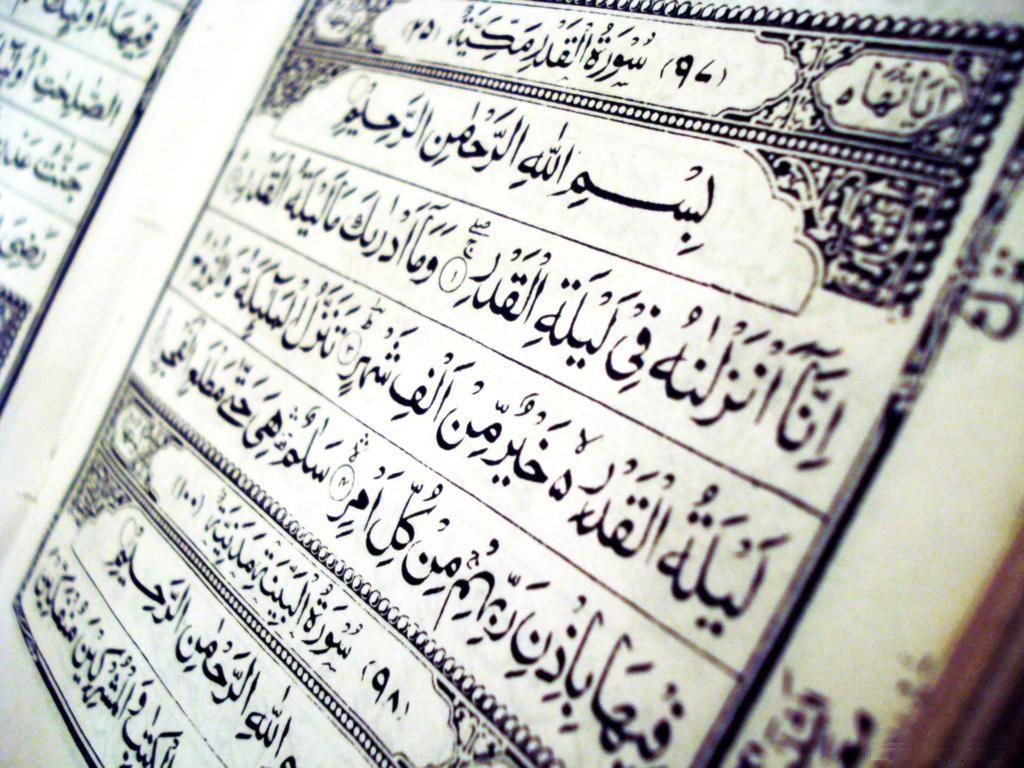 اٰيَاتُهَا ٥
(٩٧) سُوْرَةُ الْقَدْرِ مَكِّيَّةٌ (٢٥)
بِسْمِ اللّٰهِ الرَّحْمٰنِ الرَّحِيْمِ
اِنَّآ اَنْزَلْنٰهُ فِيْ لَيْلَةِ الْقَدْرِ ١ وَمَآ اَدْرٰىكَ مَا لَيْلَةُ الْقَدْرِ
لَيْلَةُ الْقَدْرِ ۵ خَيْرٌ مِّنْ اَلْفِ شَهْرٍ ٣ تَنَزَّلُ الْمَلٰٓئِكَةُ وَالرُّوْحُ
فِيْهَا بِاِذْنِ رَبِّهِمْ مِنْ كُلِّ اَمْرٍ ٤ سَلٰمٌ هِيَ حَتّٰى مَطْلَعِ الْفَجْرِ
(٩٨) سُوْرَةُ الْبَيِّنَةِ مَدَنِيَّةٌ (١٠٠)
اللّٰهِ الرَّحْمٰنِ الرَّحِيْمِ
الْكِتٰبِ وَالْمُشْرِكِيْنَ مُنْفَكِّيْنَ
فِيْهَا ۚ اُولٰٓئِكَ هُمْ
الصّٰلِحٰتِ
جَنّٰتُ عَدْنٍ
رَضِيَ